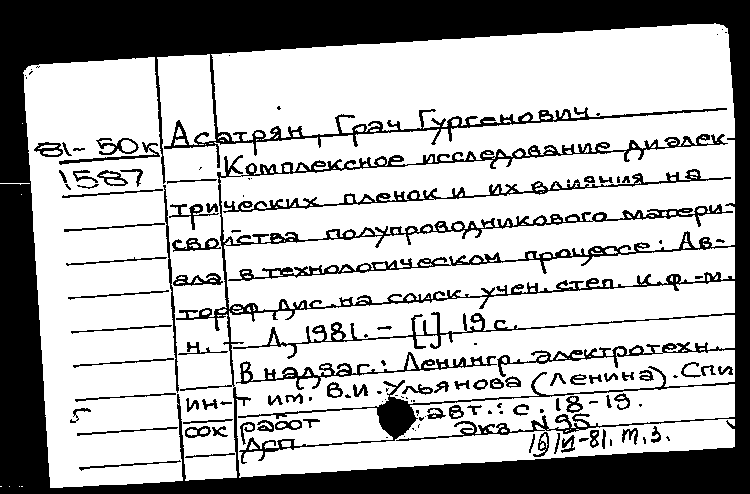 Асатрян, Грач Гургенович.
81-50к
1587
Комплексное исследование диэлек-
трических пленок и их влияния на
свойства полупроводникового матери-
ала в технологическом процессе: Ав-
тореф. дис. на соиск. учен. степ. к.ф.-м.
н. - Л., 1981. - [1], 19 с.
В надзаг.: Ленингр. электротехн.
ин-т им. В.И. Ульянова (Ленина). Спи
сок работ авт.: с. 18-19.
ДСП. Экз. N 95.
81. т. з.